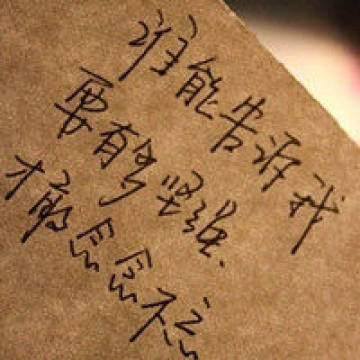 谁能告诉我
要有多坚强.
才敢念念不忘